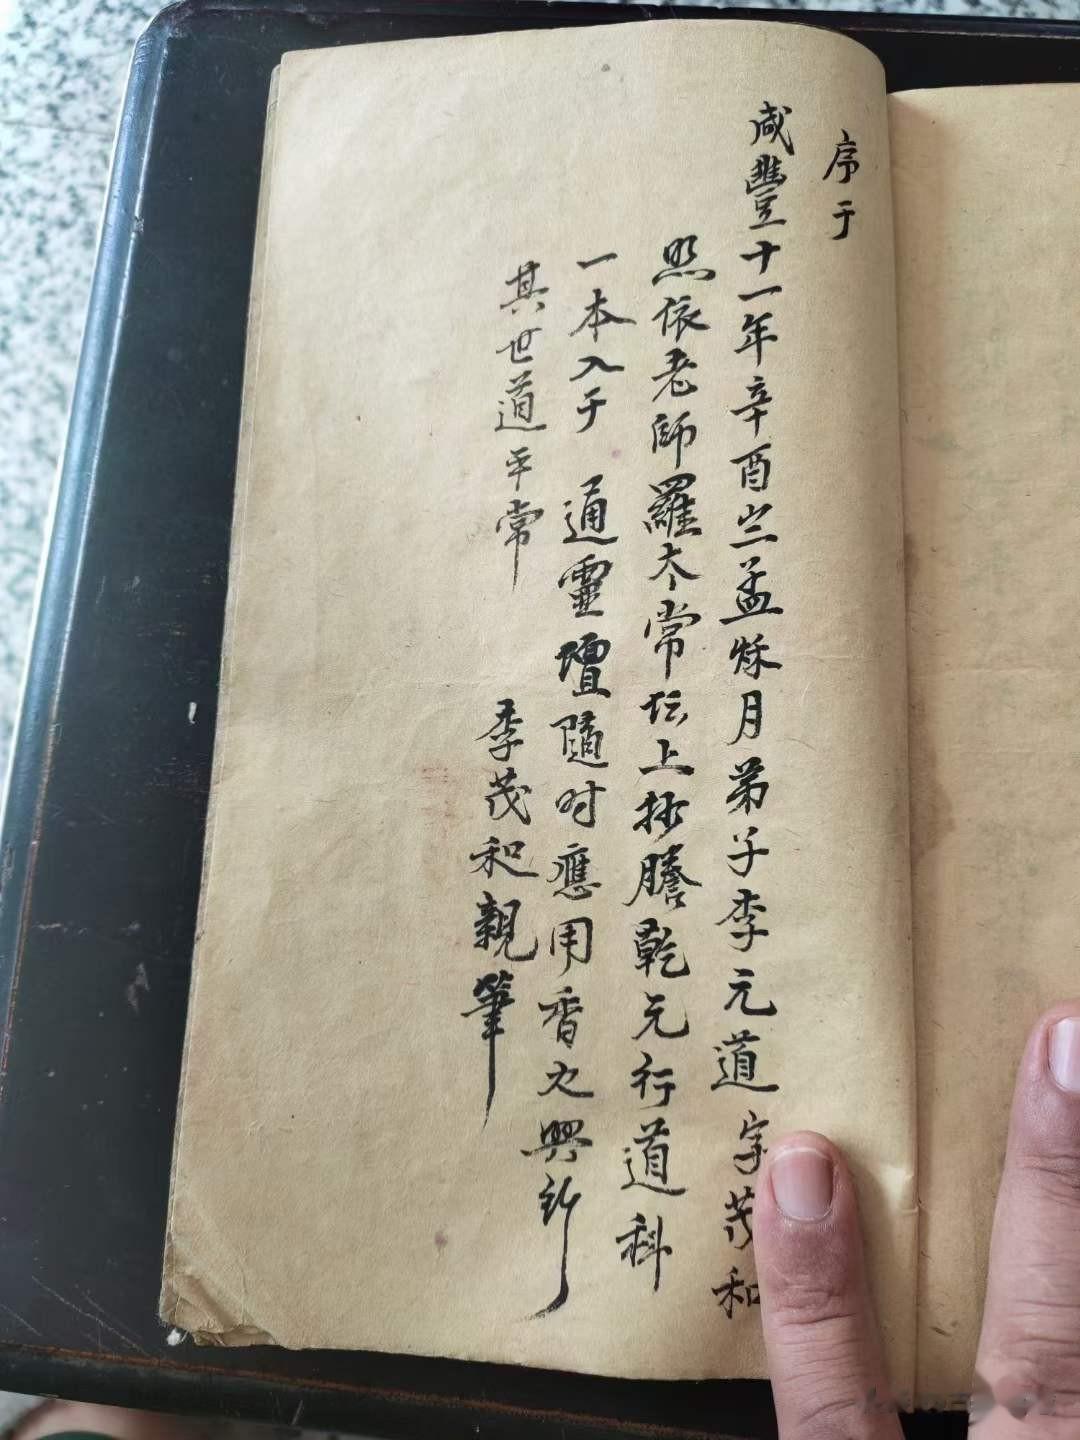 序于
咸豐十一年辛酉岁孟秌月弟子李元道字茂和
照依老師羅太常坛上抄謄乾元行道科
一本入于 通靈壇隨时應用香火興行
其世道平常
李茂和親筆